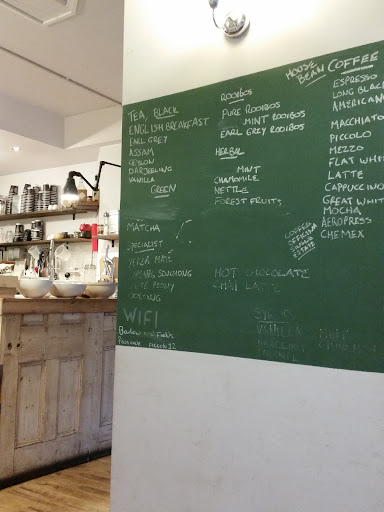 TEA, BLACK
ENGLISH BREAKFAST
EARL GREY
ASSAM
CEYLON
DARJEELING
VANILLA
GREEN
MATCHA
SPECIALIST
SOUCHONG
OOLONG
WIFI
ROOIBOS
PURE ROOIBOS
MINT ROOIBOS
EARL GREY ROOIBOS
HERBAL
MINT
CHAMOMILE
NETTLE
FOREST FRUITS
HOT CHOCOLATE
CHAI LATTE
VANILLA
HOUSE
BEAN COFFEE
ESPRESSO
LONG BLACK
AMERICAN
MACCHIATO
PICCOLO
MEZZO
FLAT WHIT
LATTE
CAPPUCCINO
GREAT WHIT
MOCHA
AEROPRESS
CHEMEX
COFFEE
OFFICINA
ESTATE